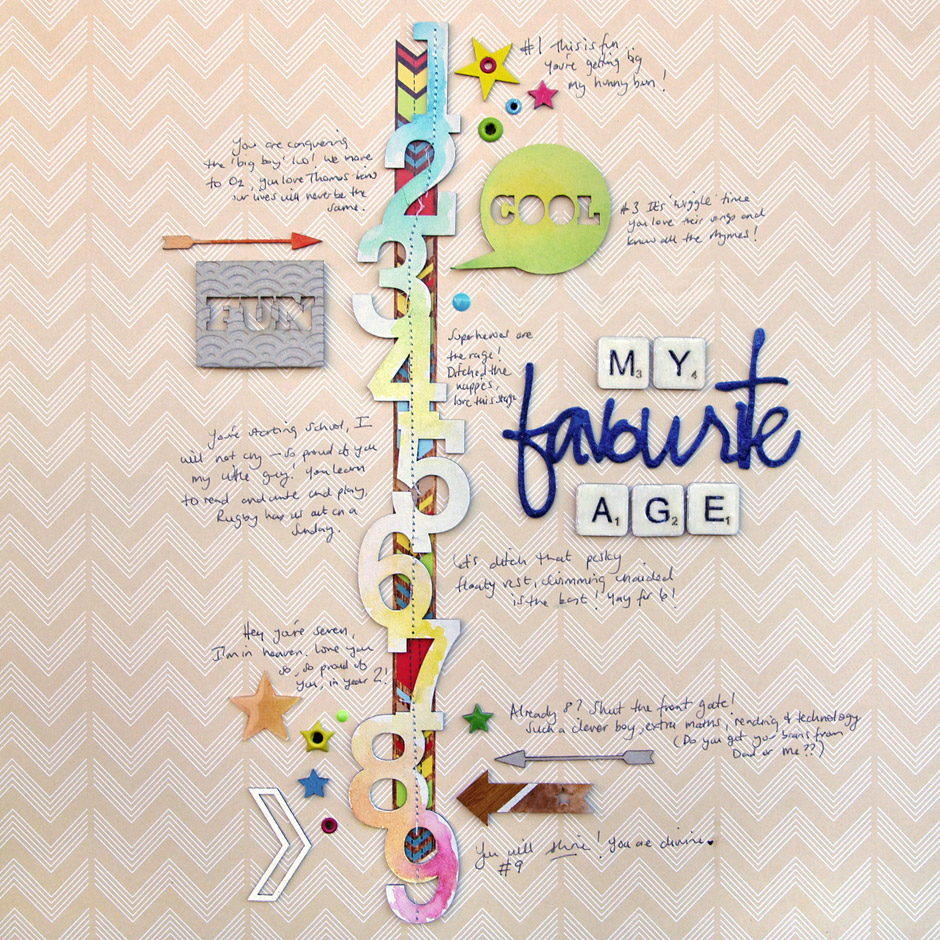 1
#1 This is fun
you're getting big
my hunny bun!
You are conquering
the 'big boy' loo! We move
to Oz, you love Thomas
our lives will never be the
same.
2
COOL
#3 It's 'wiggle' time
you love their songs and
know all the rhymes!
3
FUN
Superheroes are
the rage!
Ditched the
nappies,
love this stage
4
M3 Y4
favourite
A1 G2 E1
You're starting school, I
will not cry - so proud of you
my little guy! You learn
to read and write and play,
Rugby has us out on a
Sunday.
5
Let's ditch that pesky
floaty vest, swimming unaided
is the best! Yay for 6!
6
Hey you're seven,
I'm in heaven. Love you
so, so proud of
you, in year 2!
7
Already 8? Shut the front gate!
Such a clever boy, extra maths, reading & technology
(Do you get your brains from
Dad or Me??)
8
You will shine! You are divine.
#9
9